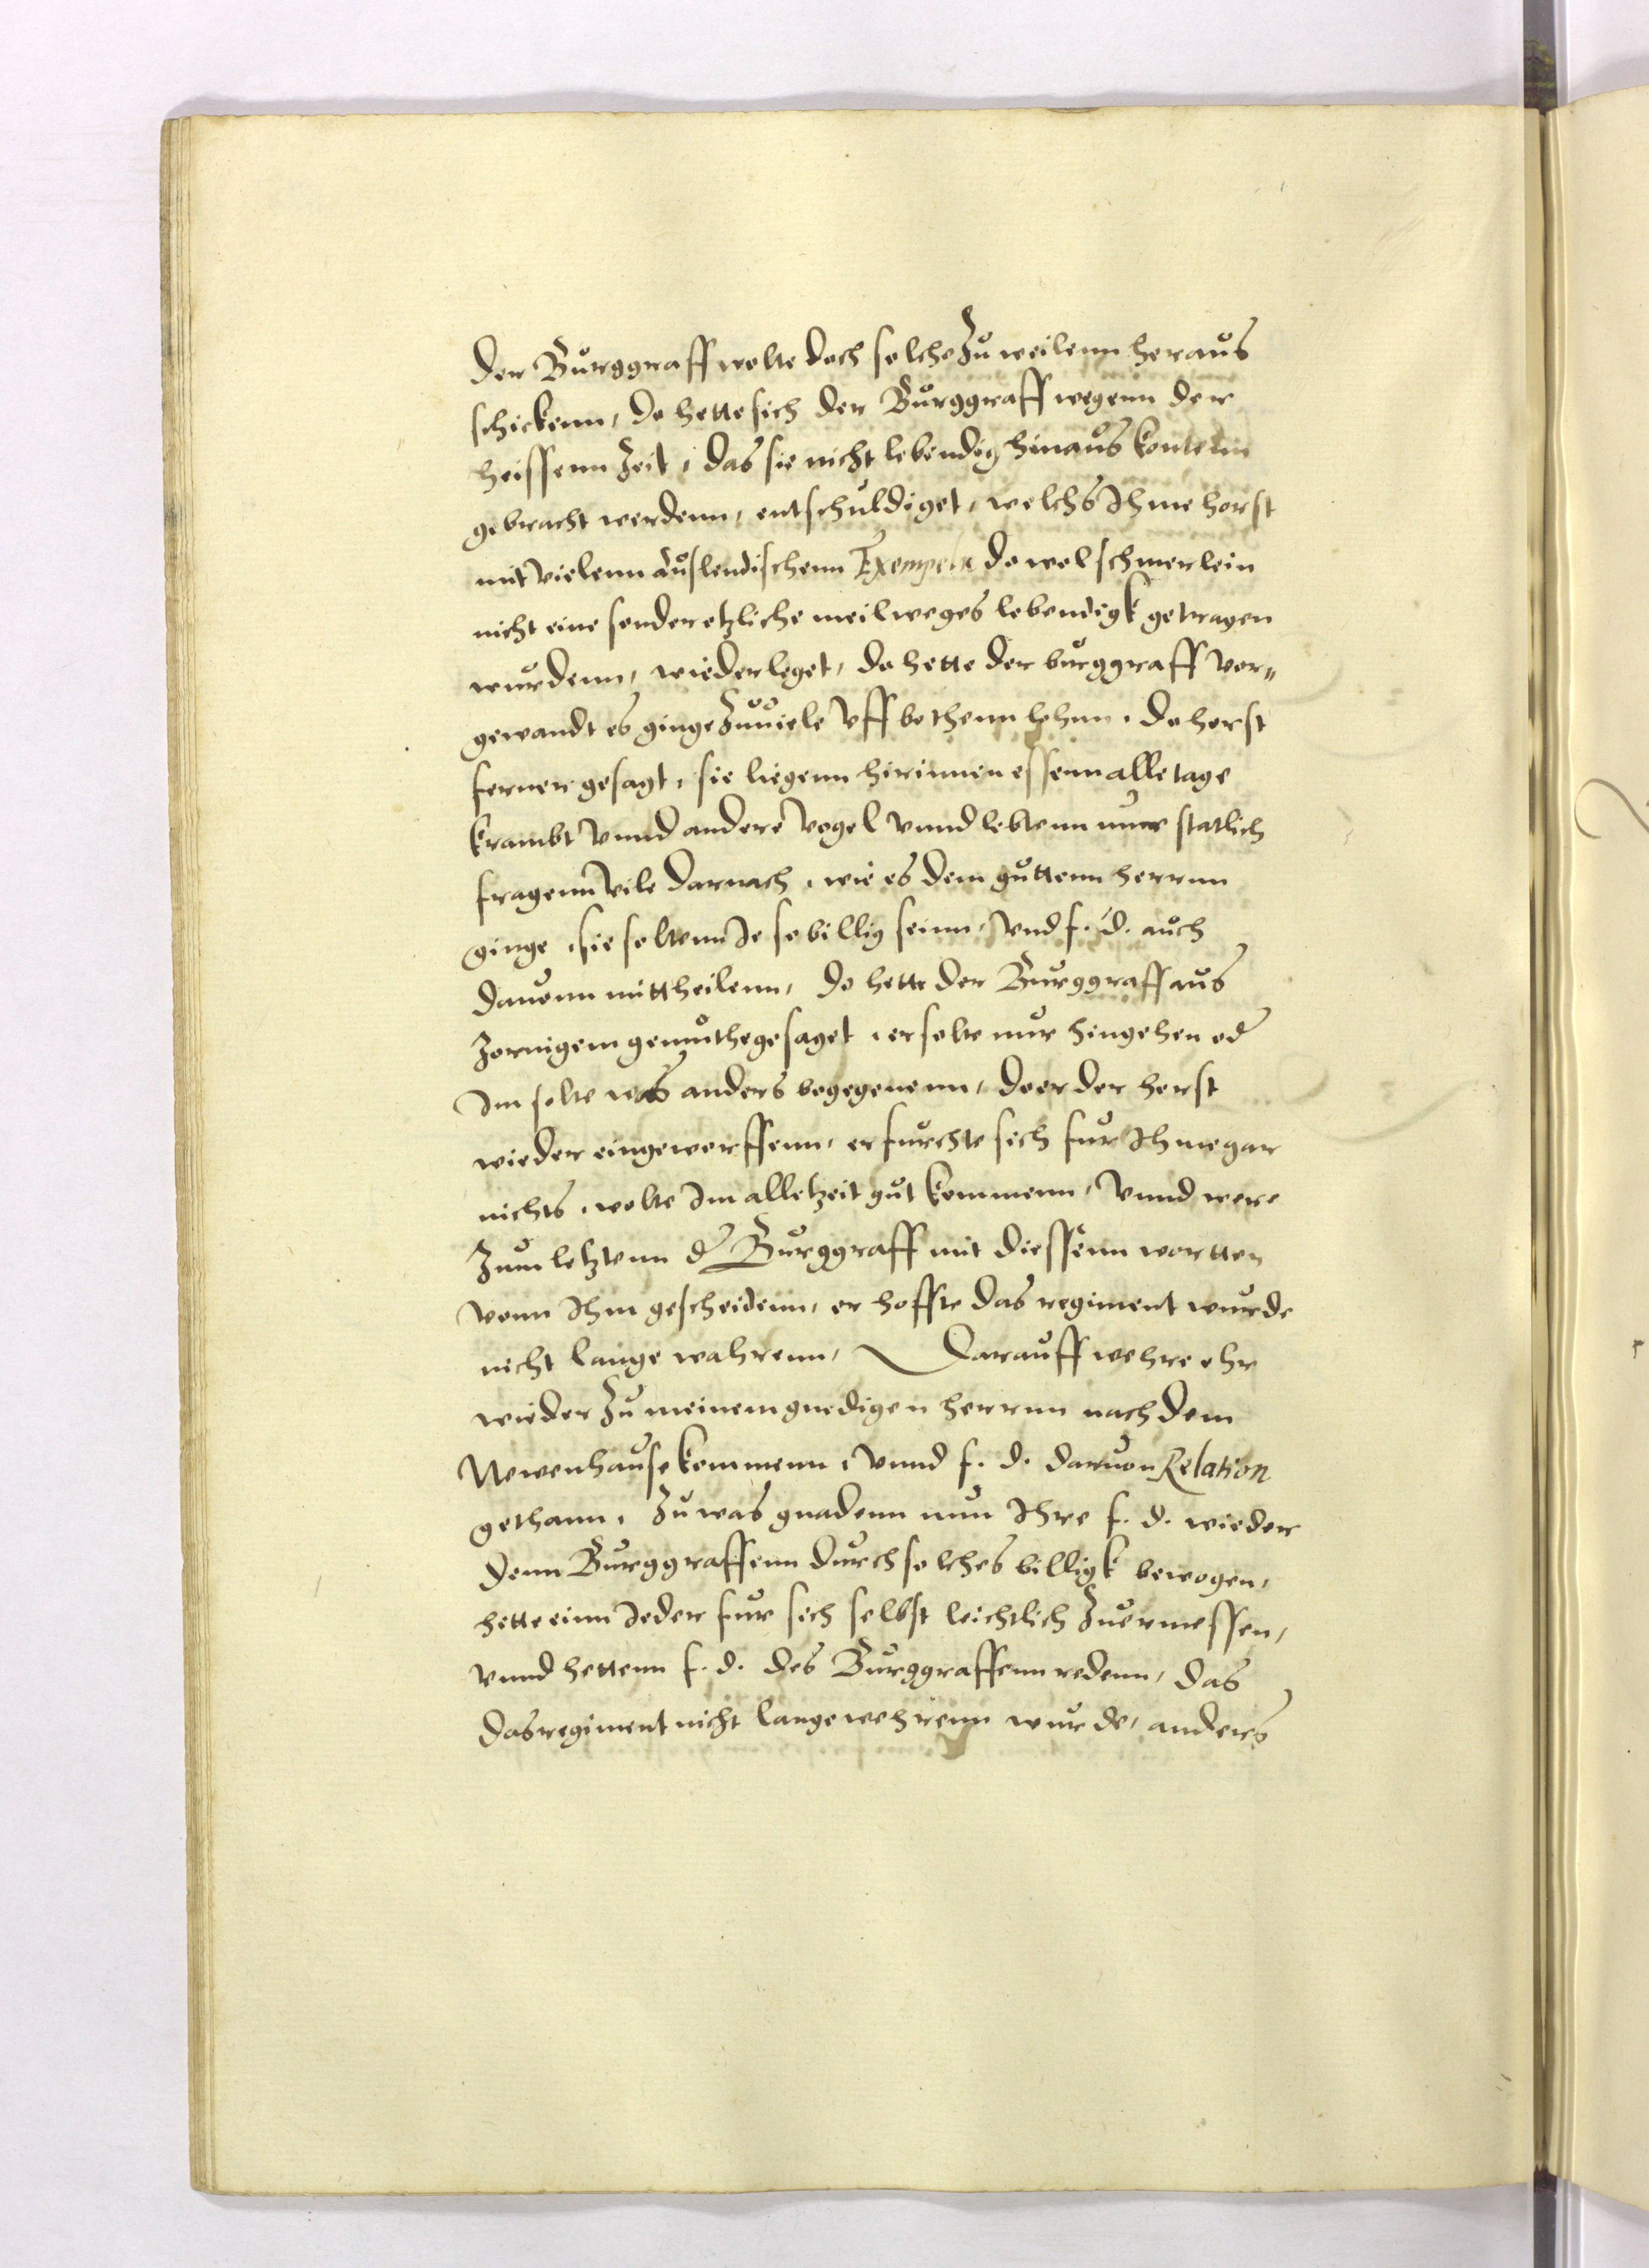 der Burggraff wolte doch solche Zu weilenn heraus
schickenn, do hette sich der Burggraff wegenn der
heissenn Zeit, das sie nicht lebendig hinaus kontenn
gebracht werdenn, entschuldiget, welchs Ihme horst
mit vielenn auslendischenn Exempeln do wol schmerlein
nicht eine sonder etzliche meil weges lebendigk getragen
wurdenn, wiederleget, do hette der burggraff vor„
gewandt es ginge Zuuiele vff bothenn lohnn. do horst
ferner gesagt, sie liegenn hirinnen essenn alle tage
krambt vnnd andere vogel vnnd lebtenn nur statlich
fragenn vile darnach, wie es dem guttenn herrnn
ginge, sie soltenn Je so billig seinn, vnd f. d. auch
dauonn mittheilenn, do hette der Burggraff aus
Zornigem gemuthe gesaget, er solte nur hingehen od
Im solte was anders begegnenn, do er der horst
wieder eingeworffenn, er furchte sich fur Ihme gar
nichts, wolte Im alletzeit gut kommenn, vnnd were
Zum letztenn d Burggraff mit diessenn wortten
vonn Ihm gescheidenn, er hoffte das regiment wurde
nicht lange wahrenn, Darauff wehre ehr
wieder Zu meinem gnedigen herrnn nach dem
Newenhause kommenn, vnnd f. d. daruon Relation
gethann, Zu was gnadenn nun Ihre f. d. wieder
denn Burggraffenn durch solches billigk bewogen,
hette einn Jeder fur sich selbst leichtlich Zuermessen,
vnnd hettenn f. d. des Burggraffenn redenn, das
das regiment nicht lange wehrenn wurde, anders